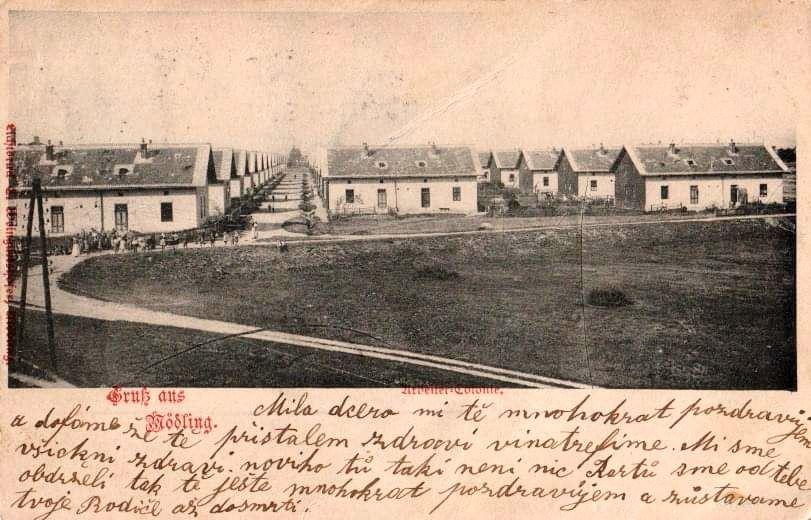 Arbeiter-Colonie.
Gruß aus
Mödling.
Mila dcero mi tě mnohokrat pozdravujem
a dofáme ze tě přistalem zdraovi vinatrefime. Mi sme
vsickni zdravi. noviho tů taki neni nic Kartů sme od tebe
obdrzeli tak tě ještě mnohokrat pozdravůjem a zůstavame
tvoje Rodiče až dosmrti.